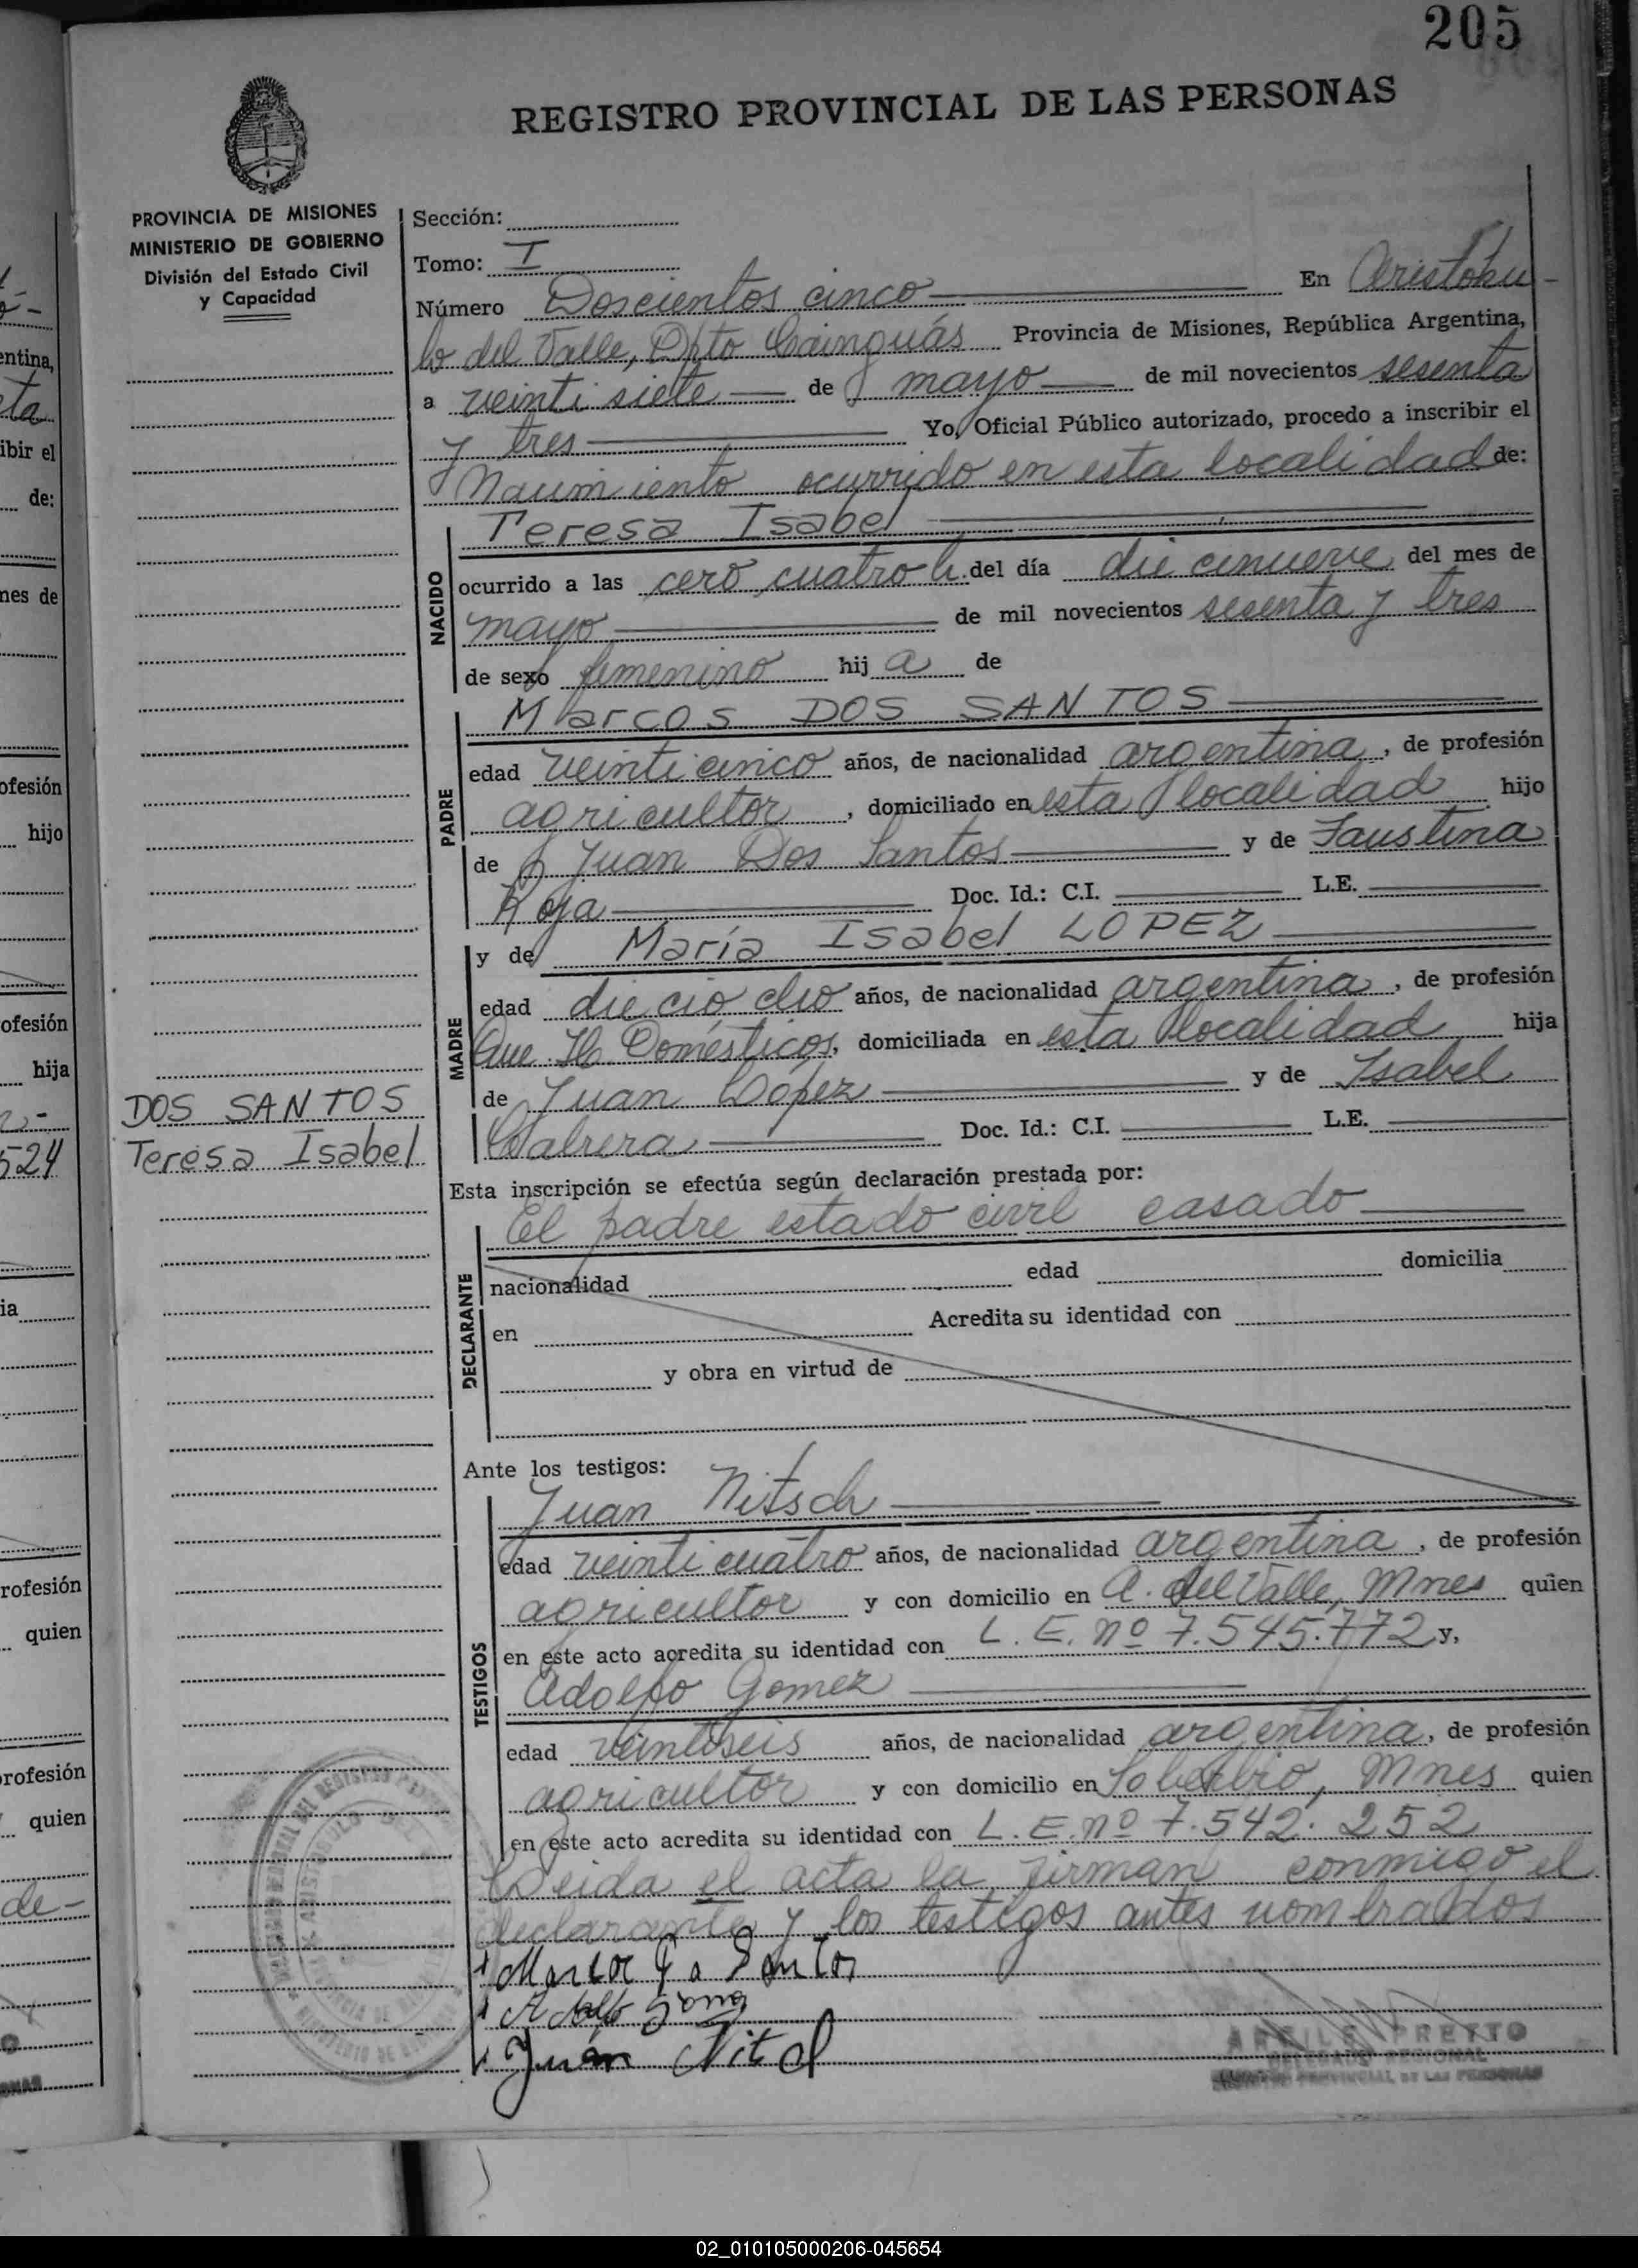 205
REGISTRO PROVINCIAL DE LAS PERSONAS
PROVINCIA DE MISIONES
MINISTERIO DE GOBIERNO
División del Estado Civil
y Capacidad
Sección:
Tomo: I
Número Doscientos cinco En Aristóbu-
lo del Valle, Dpto Cainguás Provincia de Misiones, República Argentina,
a veinti siete de mayo de mil novecientos sesenta
y tres Yo, Oficial Público autorizado, procedo a inscribir el
Nacimiento ocurrido en esta localidad de:
NACIDO
Teresa Isabel
ocurrido a las cero cuatro h. del día diecinueve del mes de
mayo de mil novecientos sesenta y tres
de sexo femenino hija de
PADRE
Marcos DOS SANTOS
edad veinticinco años, de nacionalidad argentina, de profesión
agricultor, domiciliado en esta localidad hijo
de Juan Dos Santos y de Faustina
Roja Doc. Id.: C.I. L.E.
MADRE
y de María Isabel LOPEZ
edad dieciocho años, de nacionalidad argentina, de profesión
Que. Hs. Domésticos, domiciliada en esta localidad hija
de Juan López y de Isabel
Cabrera Doc. Id.: C.I. L.E.
DOS SANTOS
Teresa Isabel
Esta inscripción se efectúa según declaración prestada por:
DECLARANTE
El padre estado civil casado
nacionalidad edad domicilia
en Acredita su identidad con
y obra en virtud de
Ante los testigos:
TESTIGOS
Juan Nitsch
edad veinticuatro años, de nacionalidad argentina, de profesión
agricultor y con domicilio en A. del Valle, Mnes quien
en este acto acredita su identidad con L. E. nº 7.545.772 y,
Adolfo Gomez
edad veintiseis años, de nacionalidad argentina, de profesión
agricultor y con domicilio en Soberbio, Mnes quien
en este acto acredita su identidad con L. E. nº 7.542.252
Leida el acta la firman conmigo el
declarante y los testigos antes nombrados
Juan
PRETTO
DELEGADO REGIONAL
PROVINCIAL DE LAS PERSONAS
entina,
ibir el
de:
mes de
ofesión
hijo
ofesión
hija
524
ia
rofesión
quien
rofesión
quien
de-
02_010105000206-045654